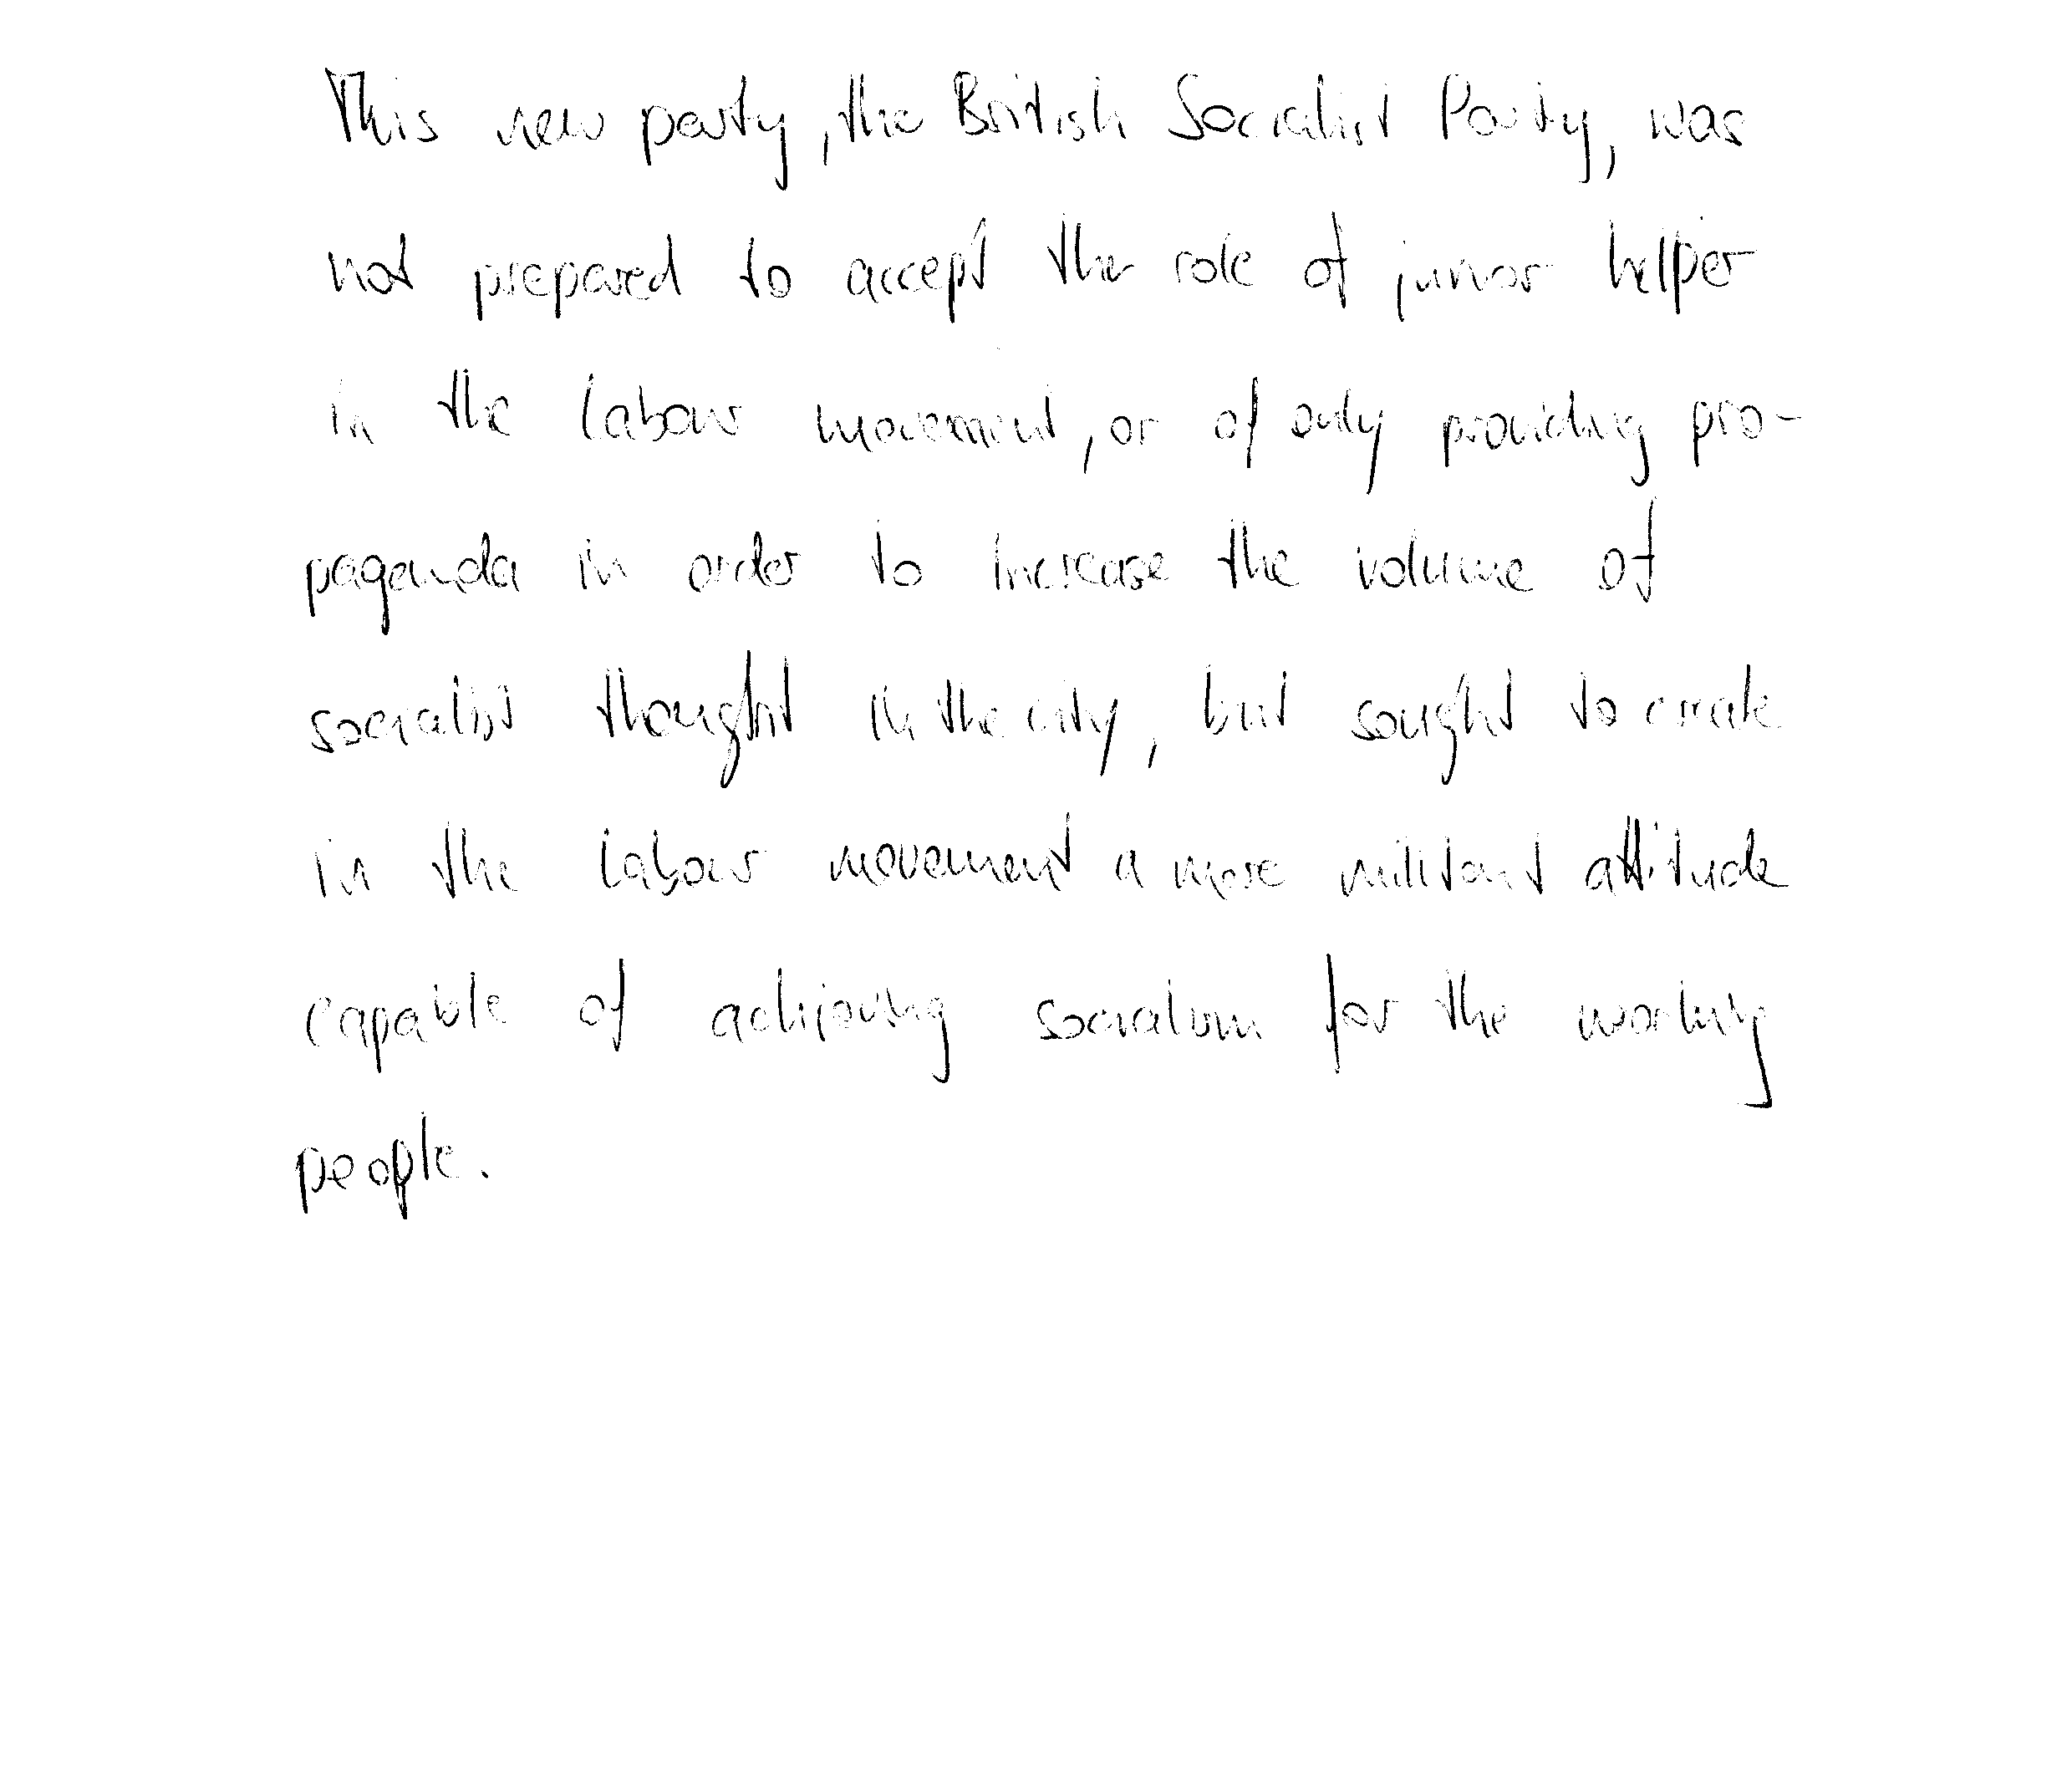 This new party, the British Socialist Party, was
not prepared to accept the role of junior helper
in the labour movement, or of only providing pro-
paganda in order to increase the volume of
socialist thought in the city, but sought to create
in the labour movement a more militant attitude
capable of achieving socialism for the working
people.